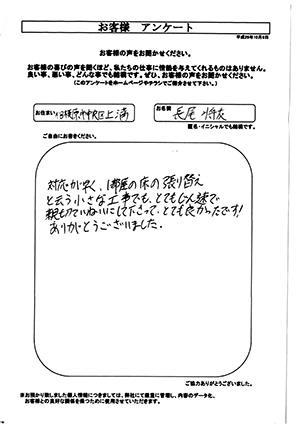 お客様 アンケート
平成26年10月8日
お客様の声をお聞かせください。
お客様の喜びの声を聞くほど、私たちの仕事に情熱を与えてくれるものはありません。
良い事、悪い事、どんな事でも結構です。ぜひ、お客様の声をお聞かせください。
(このアンケートをホームページやチラシでご紹介させて下さい。)
お住まい 相模原市中央区上溝
お名前 長尾 将友
匿名・イニシャルでも結構です。
ご自由にお書きください。
対応が早く、1部屋の床の張り替え
と云う小さな工事でも、とてもじん速で
親切ていねいにして下さって、とても良かったです!
ありがとうございました.
ご協力ありがとうございました。
※お預かり致しました個人情報につきましては、弊社にて厳重に管理し、内容のデータ化、
お客様との良好な関係を保つために使用させていただきます。